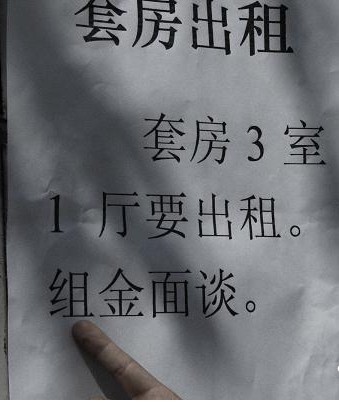 套房出租
套房3室
1厅要出租。
组金面谈。